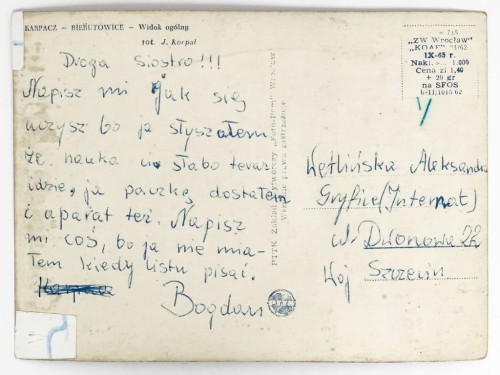 KARPACZ – BIERUTOWICE – Widok ogólny
fot. J. Korpal
Droga Siostro!!!
Napisz mi jak się
uczysz bo ja słyszałem
że nauka ci słabo teraz
idzie, ja paczkę dostałem
i aparat też. Napisz
mi coś, bo ja nie mia-
łem kiedy listu pisać.
Bogdan
PTTK Zakład Wytwórczy „Foto-Pam" Wrocław
Wszelkie prawa zastrzeżone
"ZW Wrocław"
"KOAF"
IX-65 r.
Nakł. 1.000
Cena zł 1,40
+ 20 gr
na SFOS
Wętlińska Aleksandra
Gryfice (Internat)
ul. Dworcowa 22
Woj Szczecin